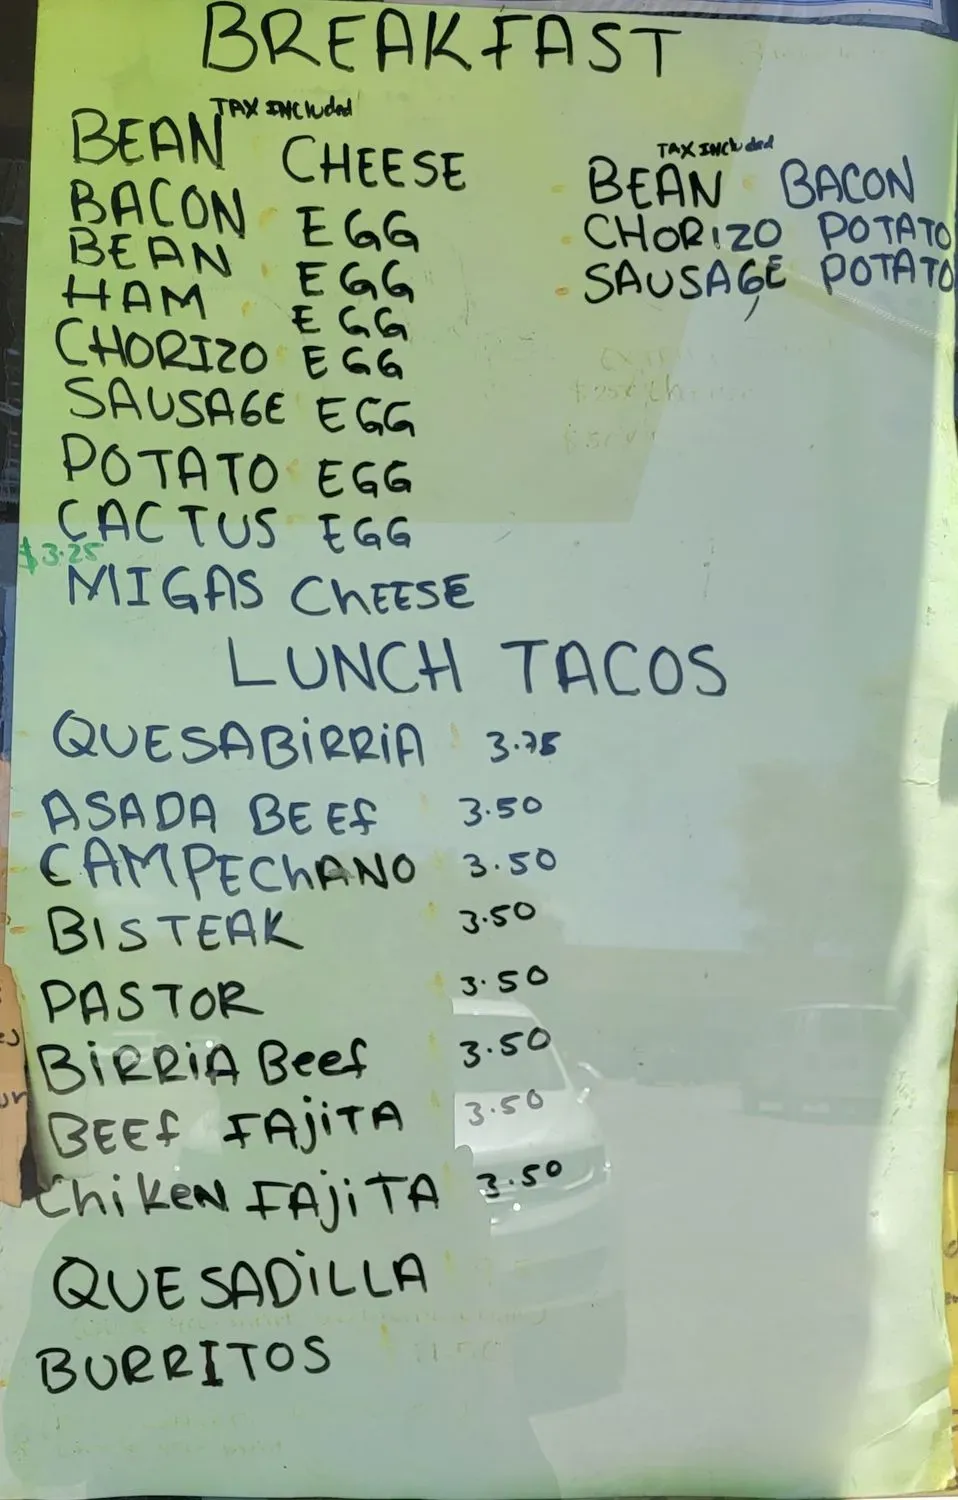 BREAKFAST
TAX INCluded
BEAN CHEESE
BACON EGG
BEAN EGG
HAM EGG
CHORIZO EGG
SAUSAGE EGG
POTATO EGG
CACTUS EGG
$3.25
MIGAS ChEESE
TAX INCluded
BEAN BACON
CHORIZO POTATO
SAUSAGE POTATO
LUNCH TACOS
QUESABiRRiA 3.75
ASADA BEEf 3.50
CAMPEChANO 3.50
BISTEAK 3.50
PASTOR 3.50
BiRRiA Beef 3.50
BEEf FAjiTA 3.50
ChiKeN FAjiTA 3.50
QUESADiLLA
BURRITOS